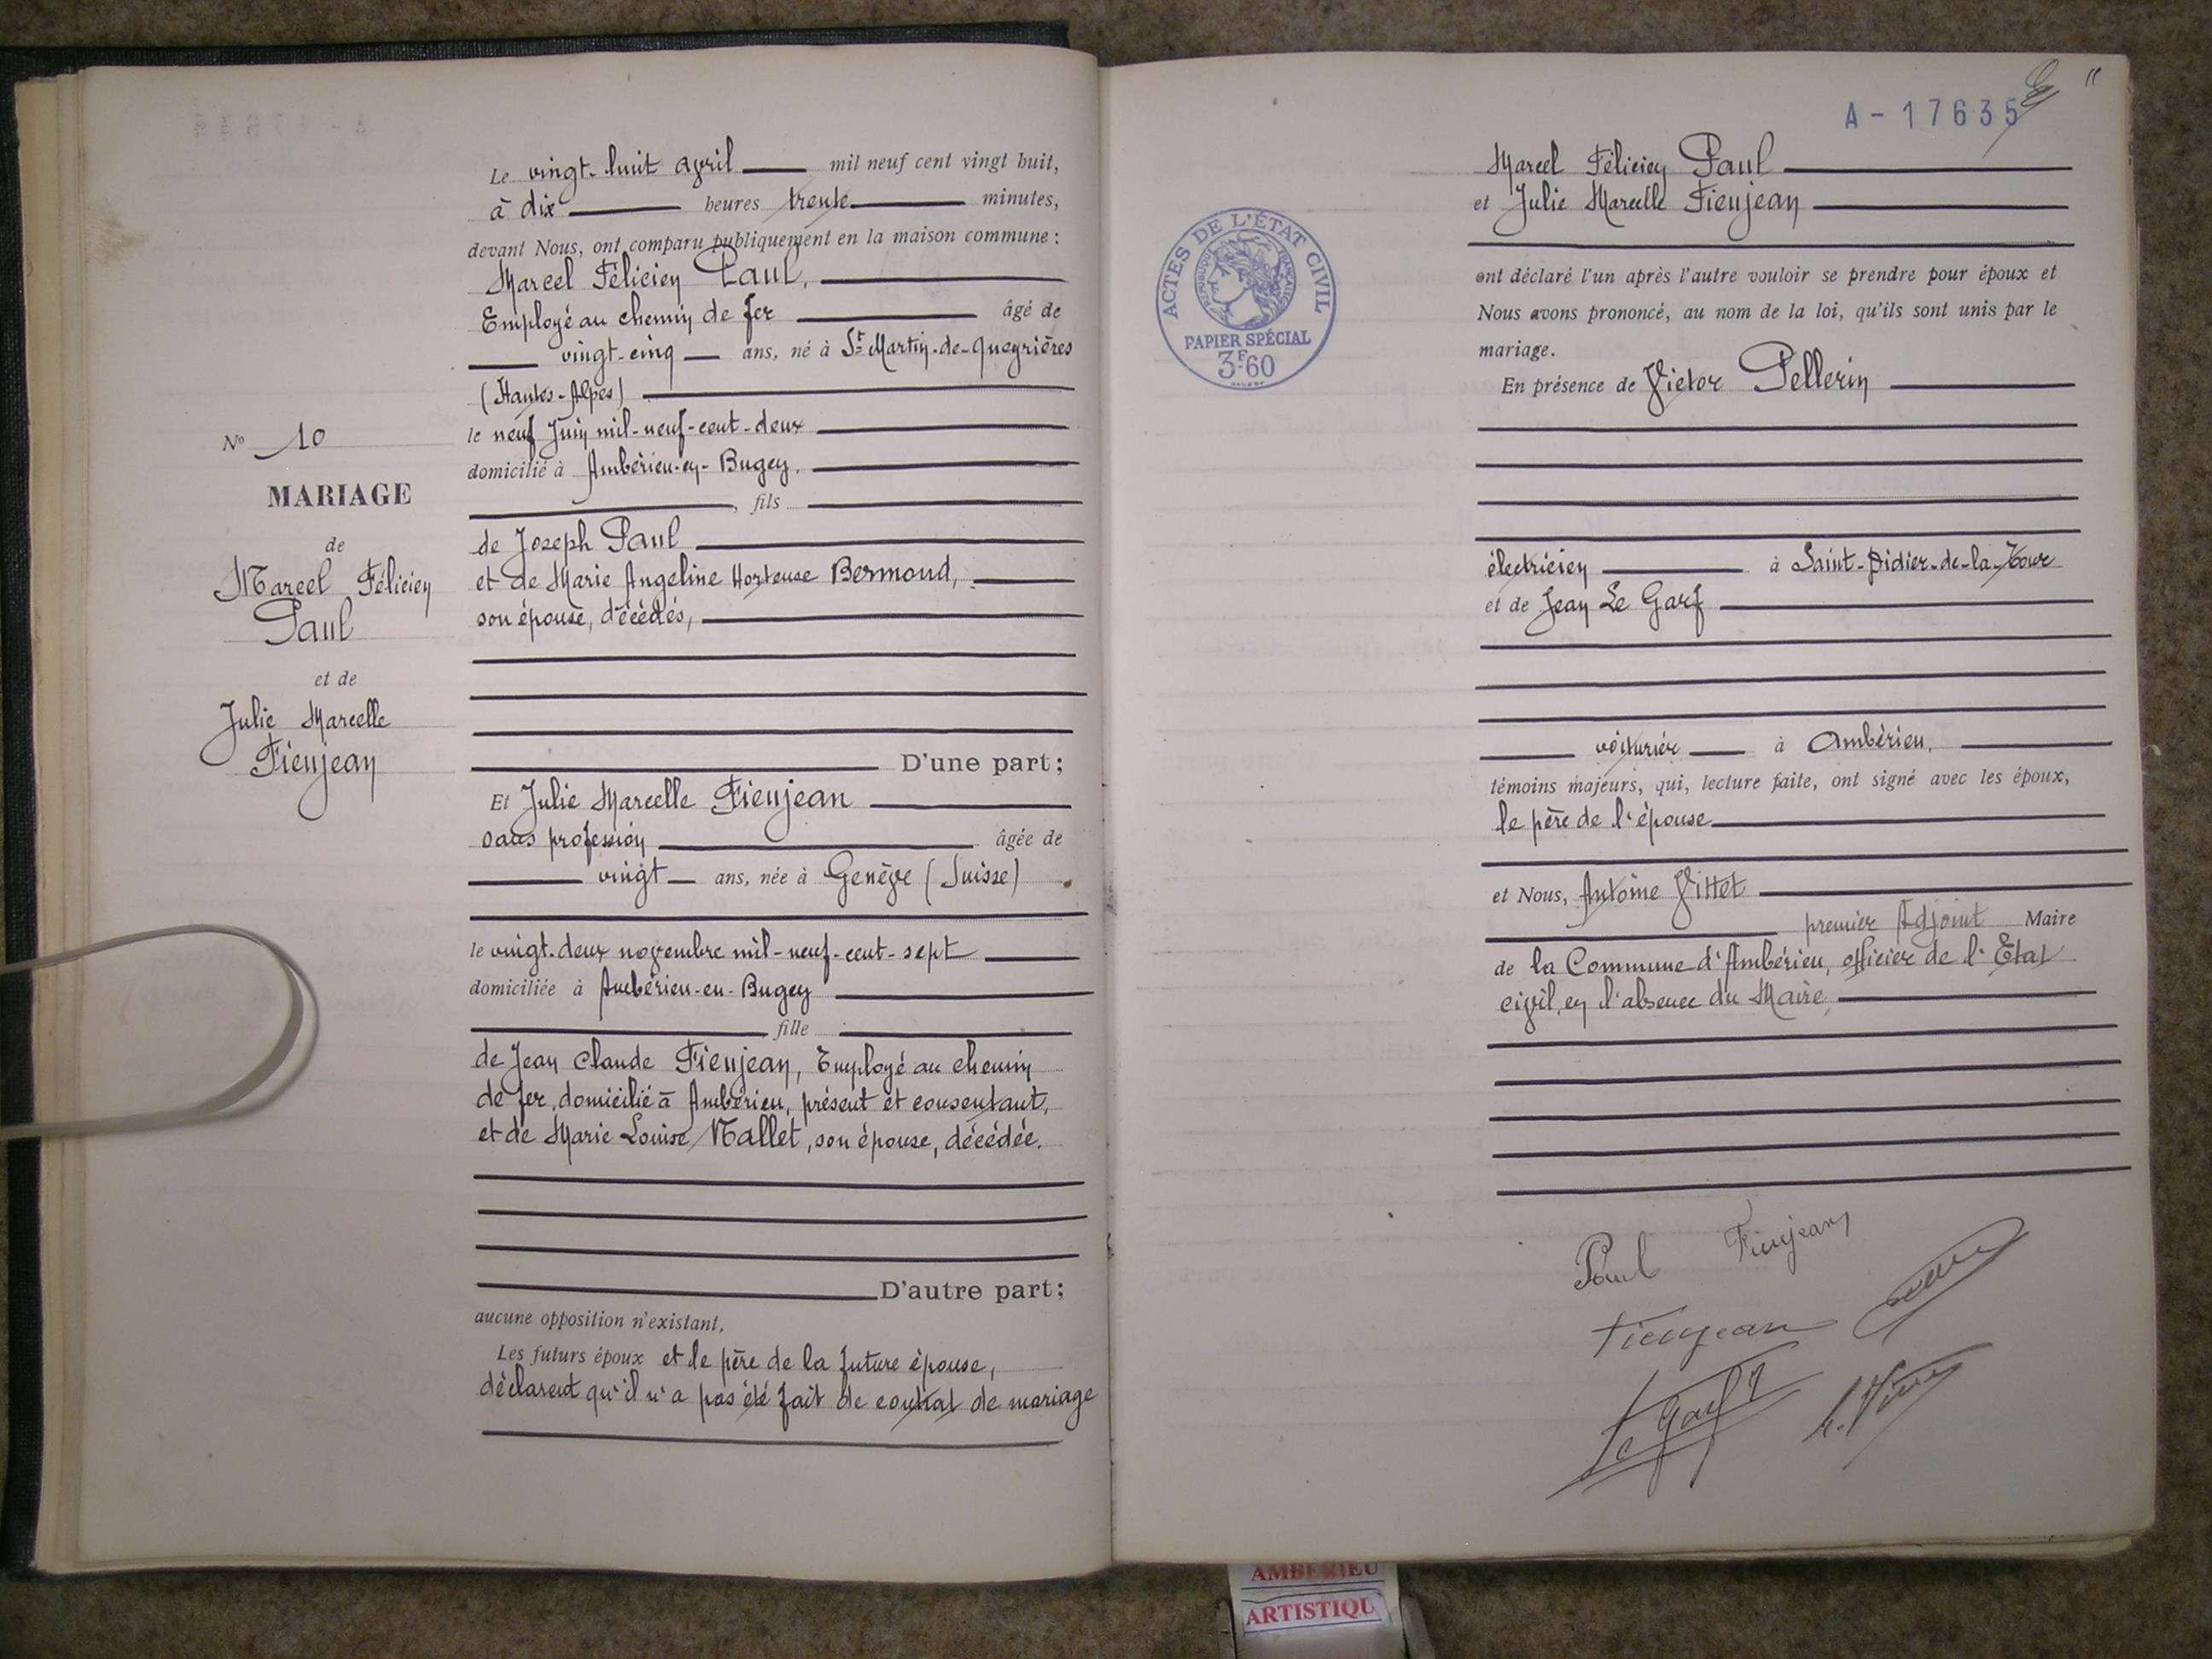 Le vingt-huit avril mil neuf cent vingt huit,
à dix heures trente minutes,
devant Nous, ont comparu publiquement en la maison commune :
Marcel Félicien Paul,
Employé au chemin de fer âgé de
vingt-cinq ans, né à St Martin-de-Queyrières
(Hautes-Alpes)
le neuf Juin mil-neuf-cent-deux
domicilié à Ambérieu-en-Bugey,
, fils
de Joseph Paul
et de Marie Angeline Hortense Bermond,
son épouse, décédés,
D'une part ;
Et Julie Marcelle Fienjean
sans profession âgée de
vingt ans, née à Genève (Suisse)
le vingt-deux novembre mil-neuf-cent-sept
domiciliée à Ambérieu-en-Bugey
fille
de Jean Claude Fienjean, Employé au chemin
de fer, domicilié à Ambérieu, présent et consentant,
et de Marie Louise Mallet, son épouse, décédée.
D'autre part ;
aucune opposition n'existant,
Les futurs époux et le père de la future épouse,
déclarent qu'il n'a pas été fait de contrat de mariage
N° 10
MARIAGE
de
Marcel Félicien
Paul
et de
Julie Marcelle
Fienjean
A-17635
11
Marcel Félicien Paul
et Julie Marcelle Fienjean
ont déclaré l'un après l'autre vouloir se prendre pour époux et
Nous avons prononcé, au nom de la loi, qu'ils sont unis par le
mariage.
En présence de Victor Pellerin
électricien à Saint-Didier-de-la-Tour
et de Jean Le Garf
voiturier à Ambérieu,
témoins majeurs, qui, lecture faite, ont signé avec les époux,
le père de l'épouse
et Nous, Antoine Vittet
premier Adjoint Maire
de la Commune d'Ambérieu, officier de l'Etat
civil, en l'absence du Maire,
ACTES DE L'ÉTAT CIVIL
RÉPUBLIQUE FRANÇAISE
PAPIER SPÉCIAL
3F.60
Paul Fienjean
Fienjean
Le Garf
AMBERIEU
ARTISTIQU